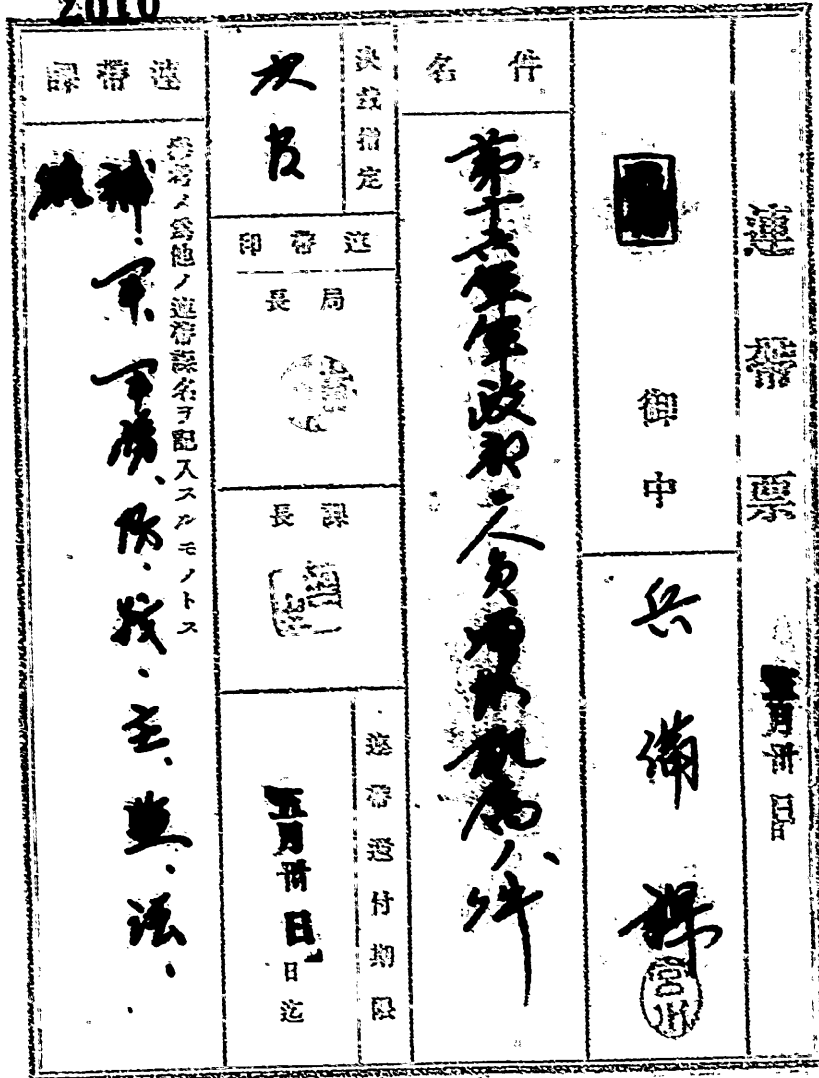 2010
連帯票
五月卅日
御中
兵備課
宮川
件名
第十六軍軍政部ニ人員増加配属ノ件
決裁指定
次官
連帯印
局長
課長
連帯送付期限
五月卅日
日迄
連帯課
備考ノ為他ノ連帯課名ヲ記入スルモノトス
補、軍、軍務、防、戦、主、監、法、